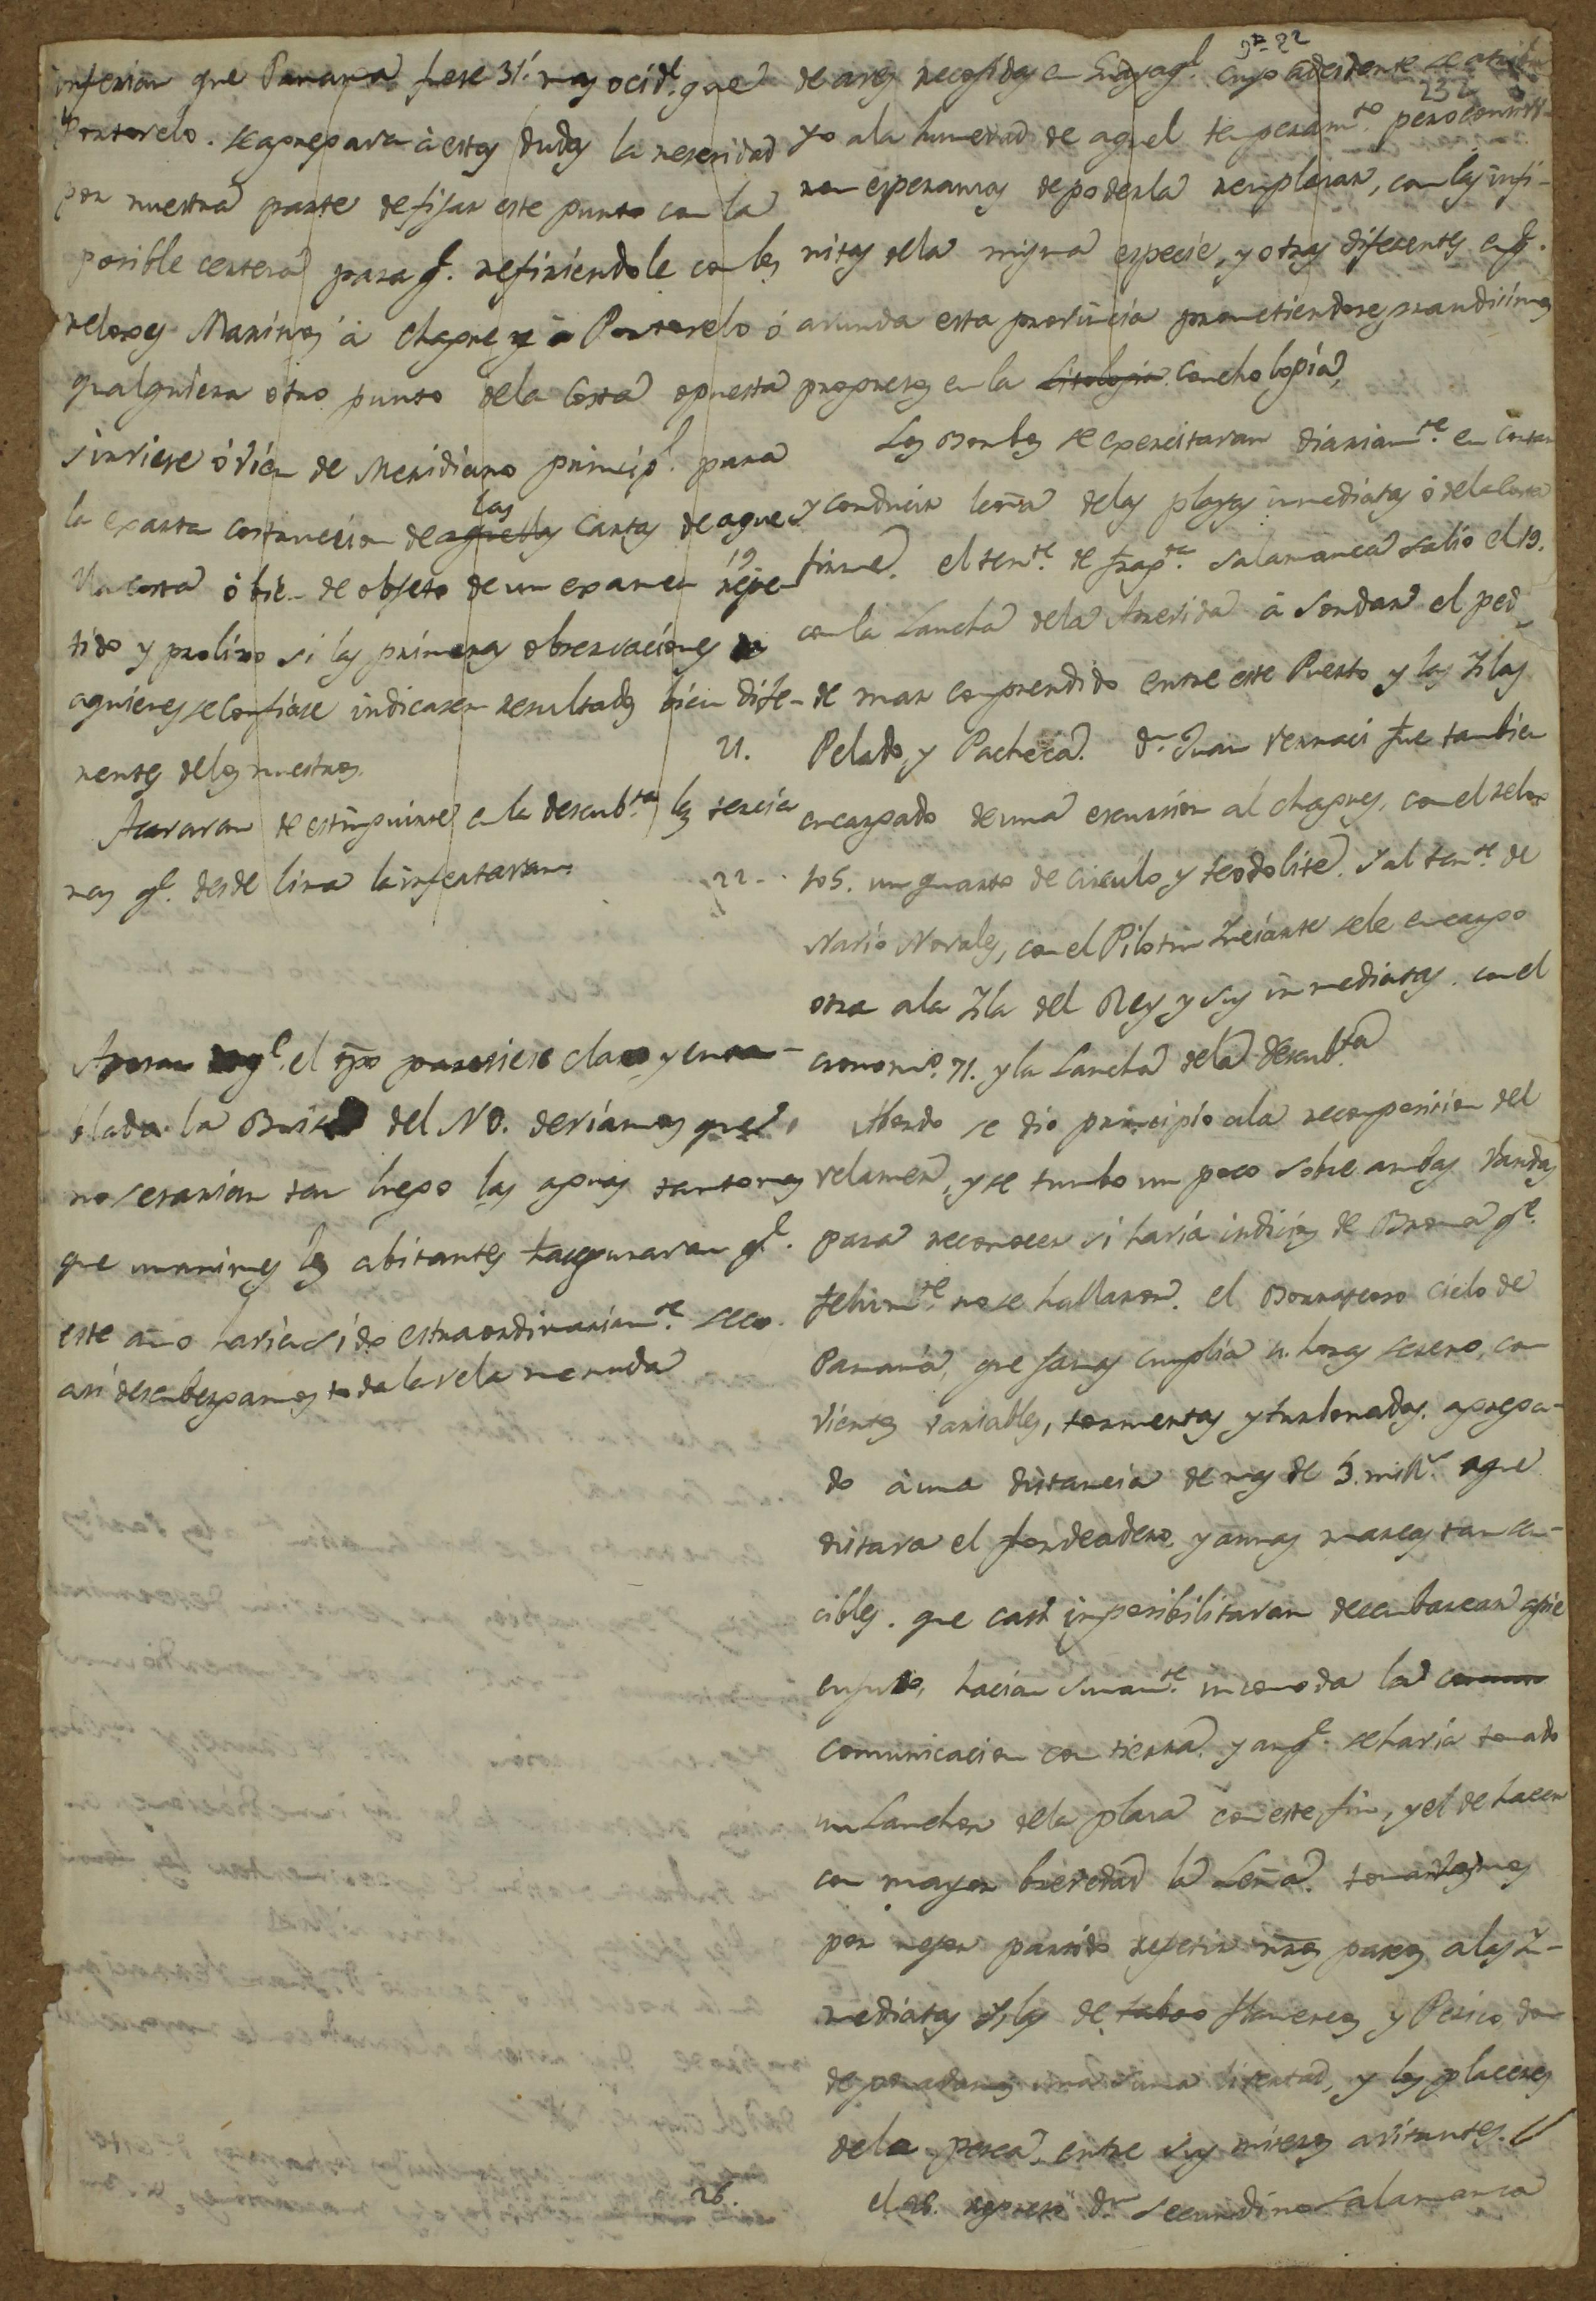 inferian que Panamá fuese 31' mas ocid.l que
Portovelo. se agregavan à estas dudas la nesesidad
por nuestra parte de fijar este punto con la
posible certesa para q.e refiriendole con los
reloxes Marinos à Chagre y à Portovelo ó
qualquiera otro punto dela Costa opuesta
sirviese ó vien de Meridiano princip.l para
la exacta costrucion de aquellas las Cartas de aque
lla costa ó bien de objeto de un examen repe-
tido y prolixo si las primeras observaciones
aquienes se confiase indicasen resultados bien dife-
rentes delos nuestros.
Acavavan de estinguirse en la descub.ta las tercia
nas q.e desde Lima la infestavan.
Apesar q.e el tpo pareciese claro y enta-
blada la Brisa del NO. deviamos que
no serian tan luego las aguas tantomas
que unanimes los abitantes haseguravan q.e
este año havia sido estraordinariam.te seco.
asi desenbergamos toda la vela menuda
19
21.
22.
26.
232
de aves recojidas en Guayaq.l cuyo acsidente se atribu
yo ala humedad de aquel temperam.to pero consert-
van esperansas de poderla remplasar, con las infi-
nitas dela misma especie, y otras diferentes en q.e
avunda esta provincia prometiendose grandisimos
progresos en la Litologia Concholopia,
Los Bordos se exercitavan diariam.te en cortar
y conducir leña delas playas inmediatas ó dela Costa
firme. el ten.te de frag.ta Salamanca salió el 19.
con la Lancha dela Atrevida à Sondar el ped.o
de mar comprendido entre este Puerto y las Islas
Pelado, y Pacheca. d.n Juan Vernaci fue tambien
encargado de una escursion al Chagres, con el relox
105. un quarto de circulo y teodolite. y al ten.te de
Navio Novales, con el Pilotin Inciarte sele encargo
otra ala Isla del Rey y sus inmediatas. con el
cronom.o 71. y la Lancha dela descub.ta
Abordo se dio principio ala recomposision del
velamen, y se tumbo un poco sobre ambas vandas
para reconocer si havia indicios de Broma q.e
felizm.te no se hallaron. el Borrascoso cielo de
Panamá, que jamas cumplia 12. horas sereno, con
vientos variables, tormentas y turbonadas. agrega-
do à una distancia de mas de 3. mill.s que
distava el fondeadero, y aunas mareas tan sen-
cibles. que casi imposibilitavan desenbarcar apie
enjuto, hacian sumam.te incomoda la
comunicacion con tierra. y aunq.e se havia tomado
un Lanchon dela plasa con este fin, y el de hacer
con mayor brevedad la Leña. tomavamos
por mejor partido referir nros paseos alas I-
mediatas Islas de Tabog Flamencos y Perico, don
de gosavamos una suma livertad, y los placeres
dela pesca, entre sus miseros avitantes.
el 26. regreso d.n Secundino Salamanca